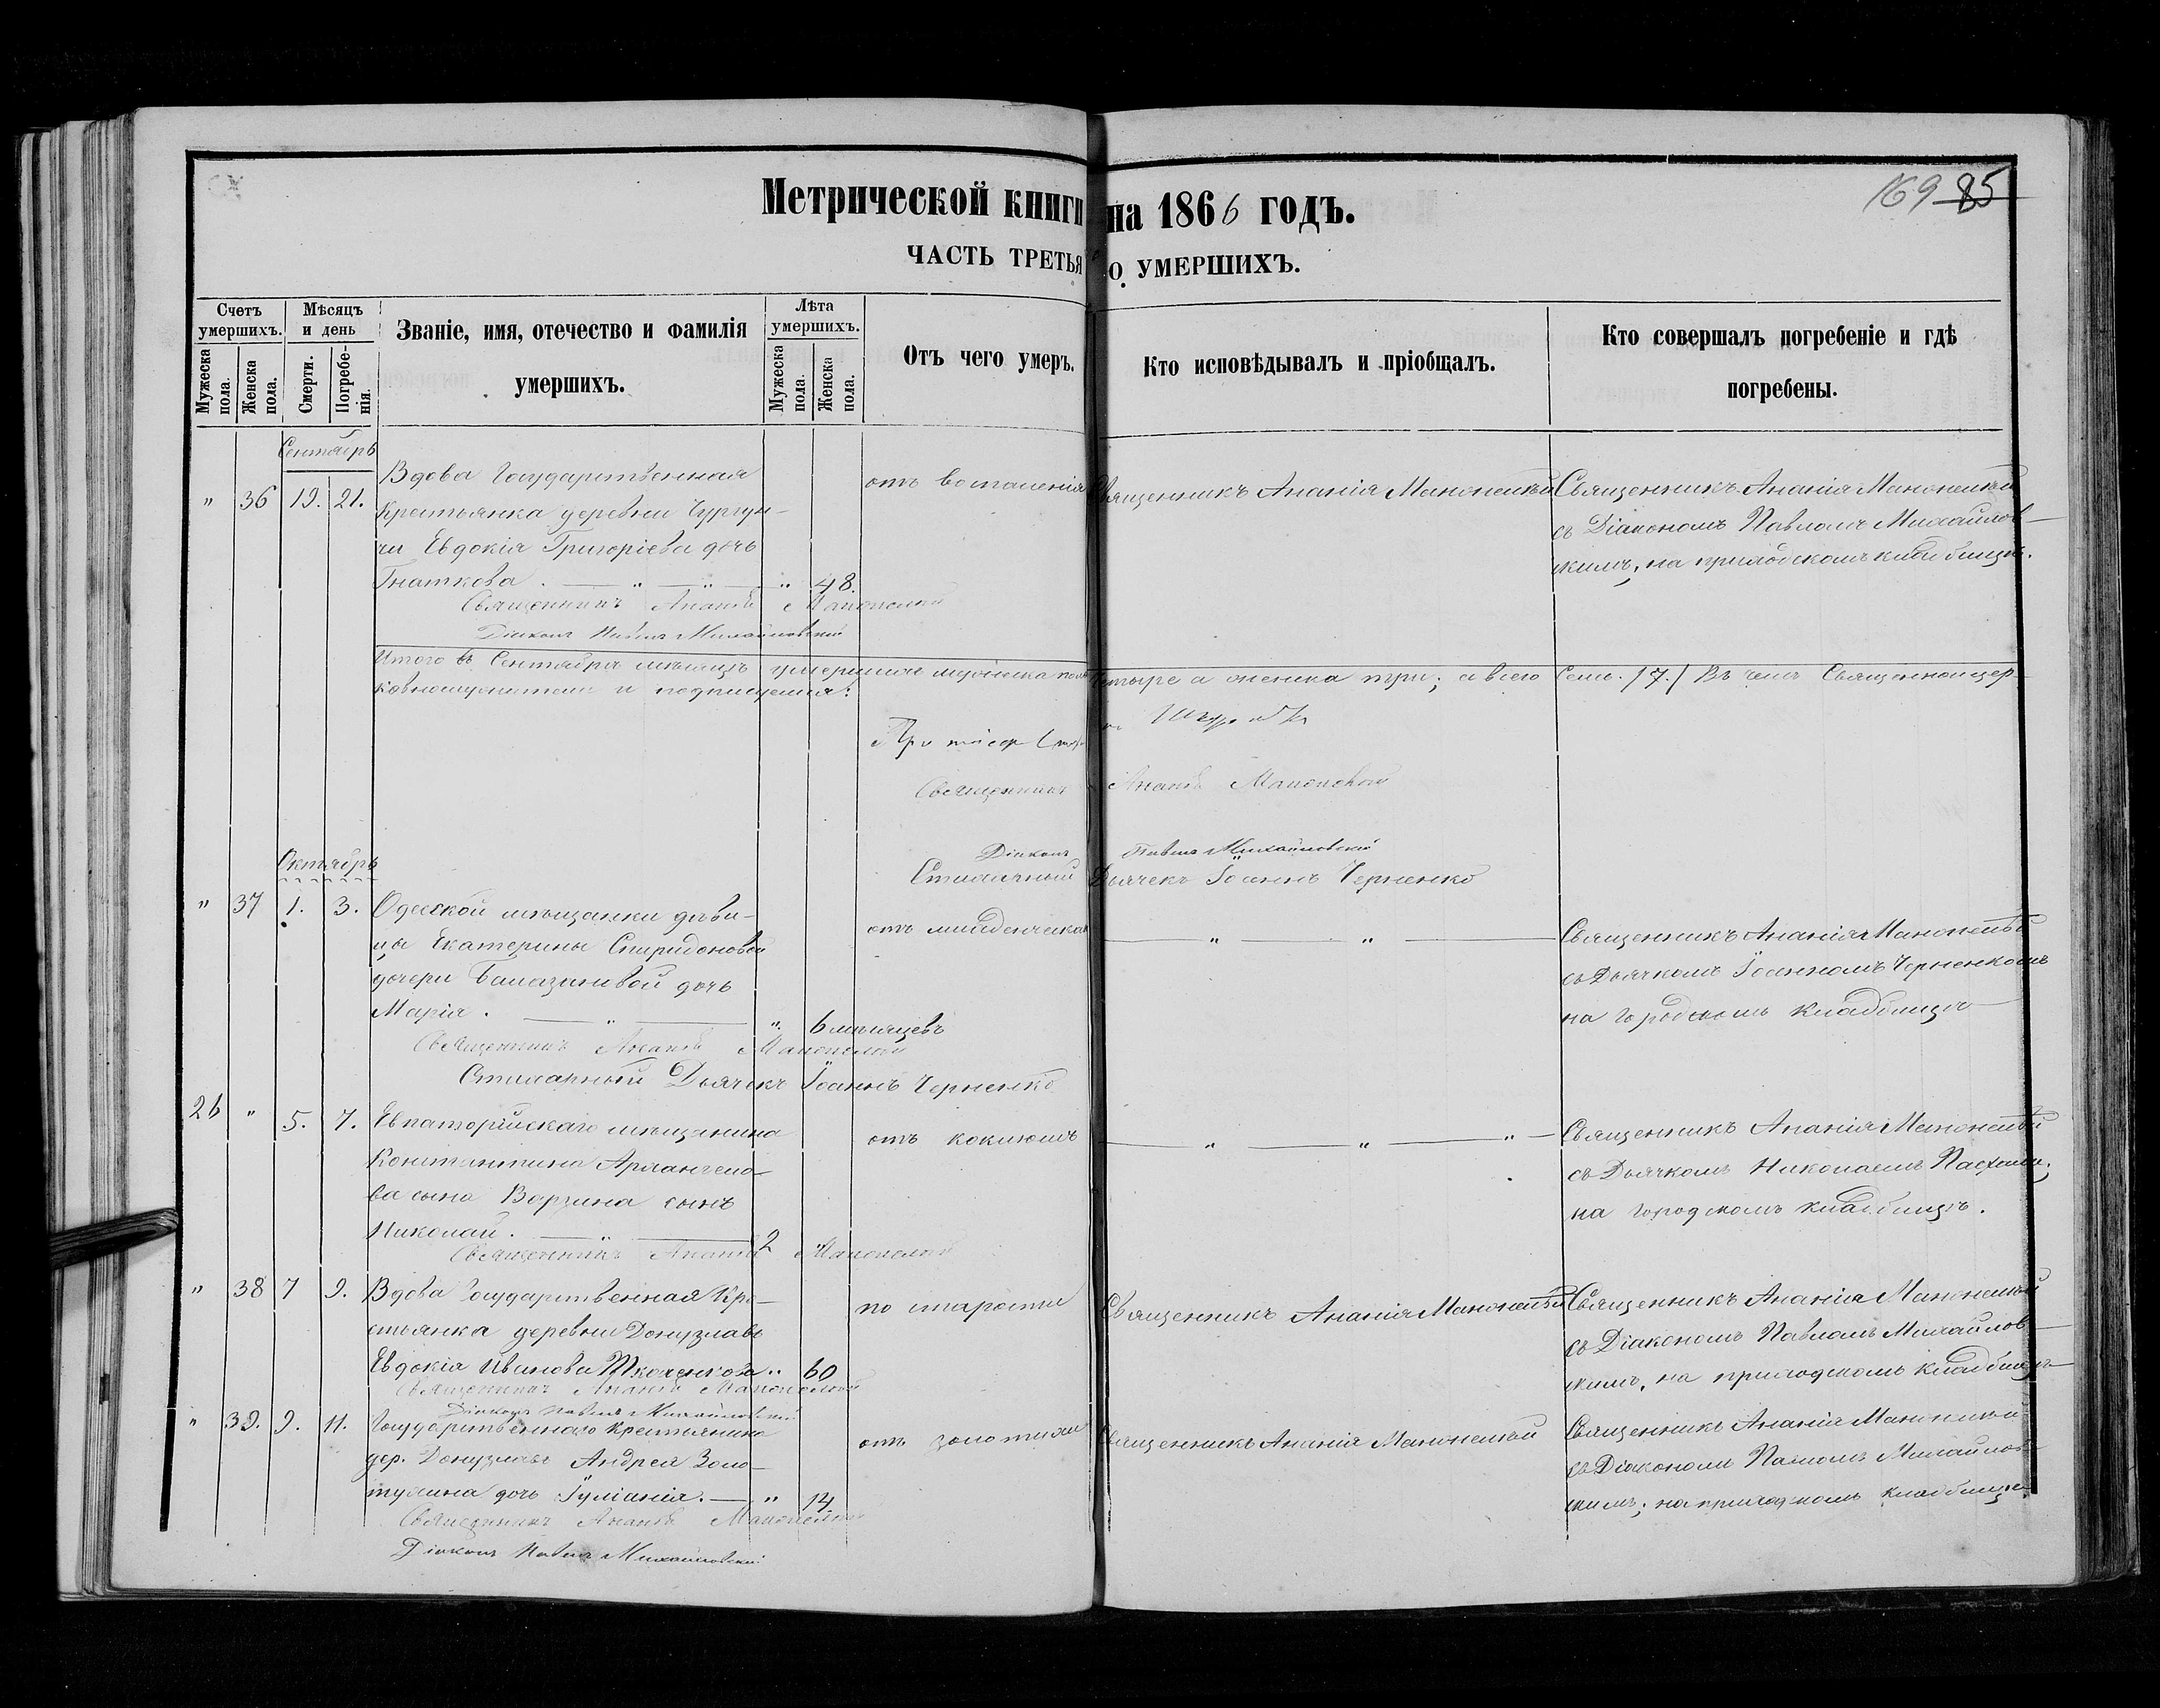 169 85
Метрической книги на 1866 годъ.
ЧАСТЬ ТРЕТЬЯ О УМЕРШИХЪ.
Счетъ умершихъ.
Мѣсяцъ и день
Званіе, имя, отечество и фамилія умершихъ.
Лѣта умершихъ.
Отъ чего умеръ.
Кто исповѣдывалъ и пріобщалъ.
Кто совершалъ погребеніе и гдѣ погребены.
Мужеска пола.
Женска пола.
Смерти.
Погребенія.
Мужеска пола.
Женска пола.
Сентябрь
" 36 19. 21.
Вдова Государственная
Крестьянка деревни Чургун-
чи Евдокія Григоріева дочь
Гнаткова. " " " 48.
отъ воспаленія
Священникъ Ананія
Священникъ Ананія
съ Діакономъ Павломъ Михайлов-
скимъ, на приходскомъ кладбищѣ.
Священникъ Ананія
Діаконъ Павелъ Михайловскій
Итого въ Сентябрѣ мѣсяцѣ умершихъ мужеска пола четыре а женска три; а всего семь. /7./ Въ чемъ Священноцер-
ковнослужители и подписуемся:
Священникъ Ананія
Діаконъ Павелъ Михайловскій
Дьячекъ Іоаннъ Черненко
Октябрь
" 37 1. 3.
Одесской мѣщанки дѣви-
цы Екатерины Спиридоновой
дочери дочь
Марія. " " 6 мѣсяцевъ
отъ младенческой
" "
Священникъ Ананія
съ Дьячкомъ Іоанномъ Черненкомъ
на городскомъ кладбищѣ
Священникъ Ананія
Дьячекъ Іоаннъ Черненко
26 " 5. 7.
Евпаторійскаго мѣщанина
Константина Архангело-
ва сына сынъ
Николай. " 2 "
отъ коклюшъ
" " "
Священникъ Ананія
съ Дьячкомъ Николаемъ
на городскомъ кладбищѣ.
Священникъ Ананія
" 38 7 9.
Вдова Государственная Кре-
стьянка деревни Донузлавъ
Евдокія Иванова Ткаченкова " 60
по старости
Священникъ Ананія
Священникъ Ананія
съ Діакономъ Павломъ Михайлов-
скимъ, на приходскомъ кладбищѣ
Священникъ Ананія
Діаконъ Павелъ Михайловскій
" 39. 9. 11.
Государственнаго крестьянина
дер. Донузлавъ Андрея Золо-
тухина дочь Іуліанія. " 14.
отъ золотухи
Священникъ Ананія
Священникъ Ананія
съ Діакономъ Павломъ Михайлов-
скимъ; на приходскомъ кладбищѣ
Священникъ Ананія
Діаконъ Павелъ Михайловскій